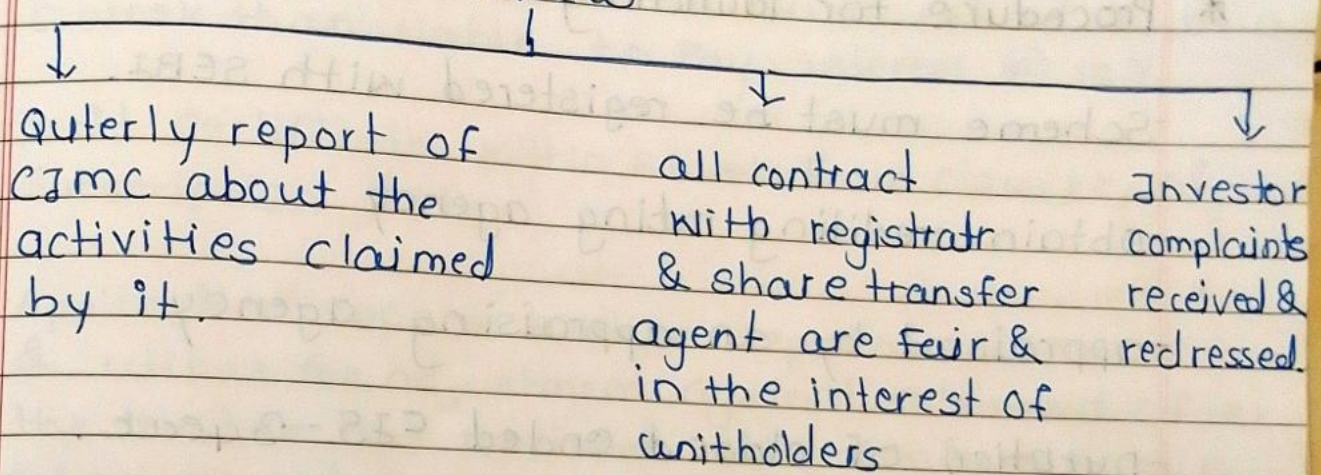 Quterly report of
CIMC about the
activities claimed
by it.
all contract
with registratr
& share transfer
agent are Fair &
in the interest of
unitholders
Investor
complaints
received &
redressed.